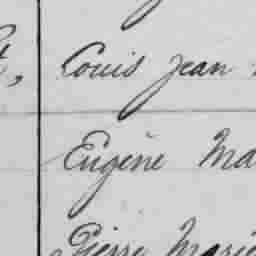 Louis Jean
Eugène Ma
Pierre Marie